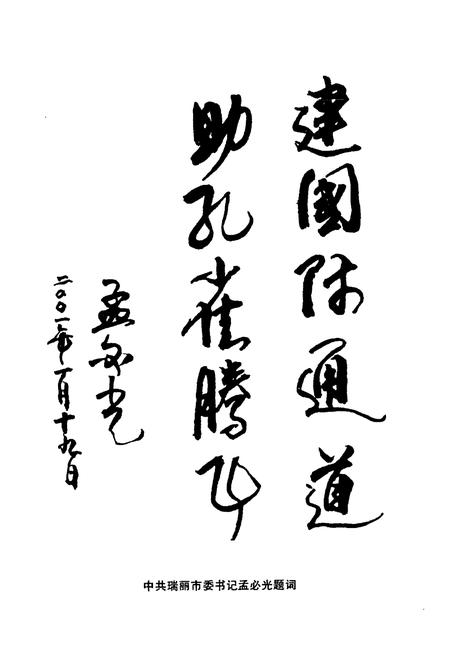 建國际通道
助孔雀腾飞
孟必光
二〇〇一年一月十九日
中共瑞丽市委书记孟必光题词